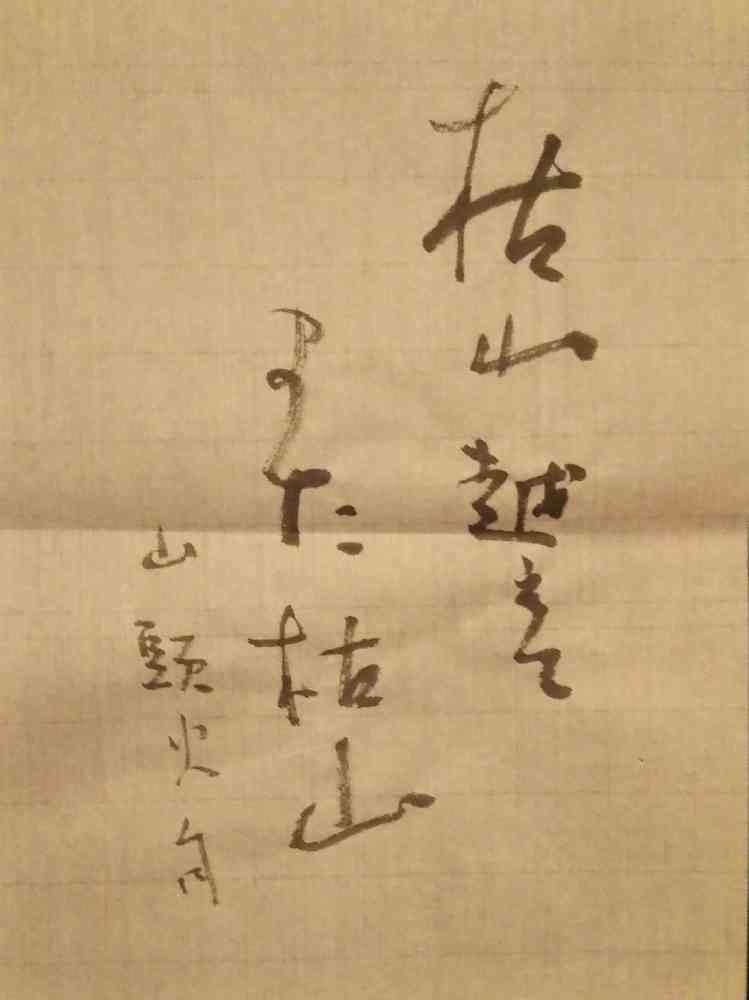 枯山越えて
また枯山
山頭火句